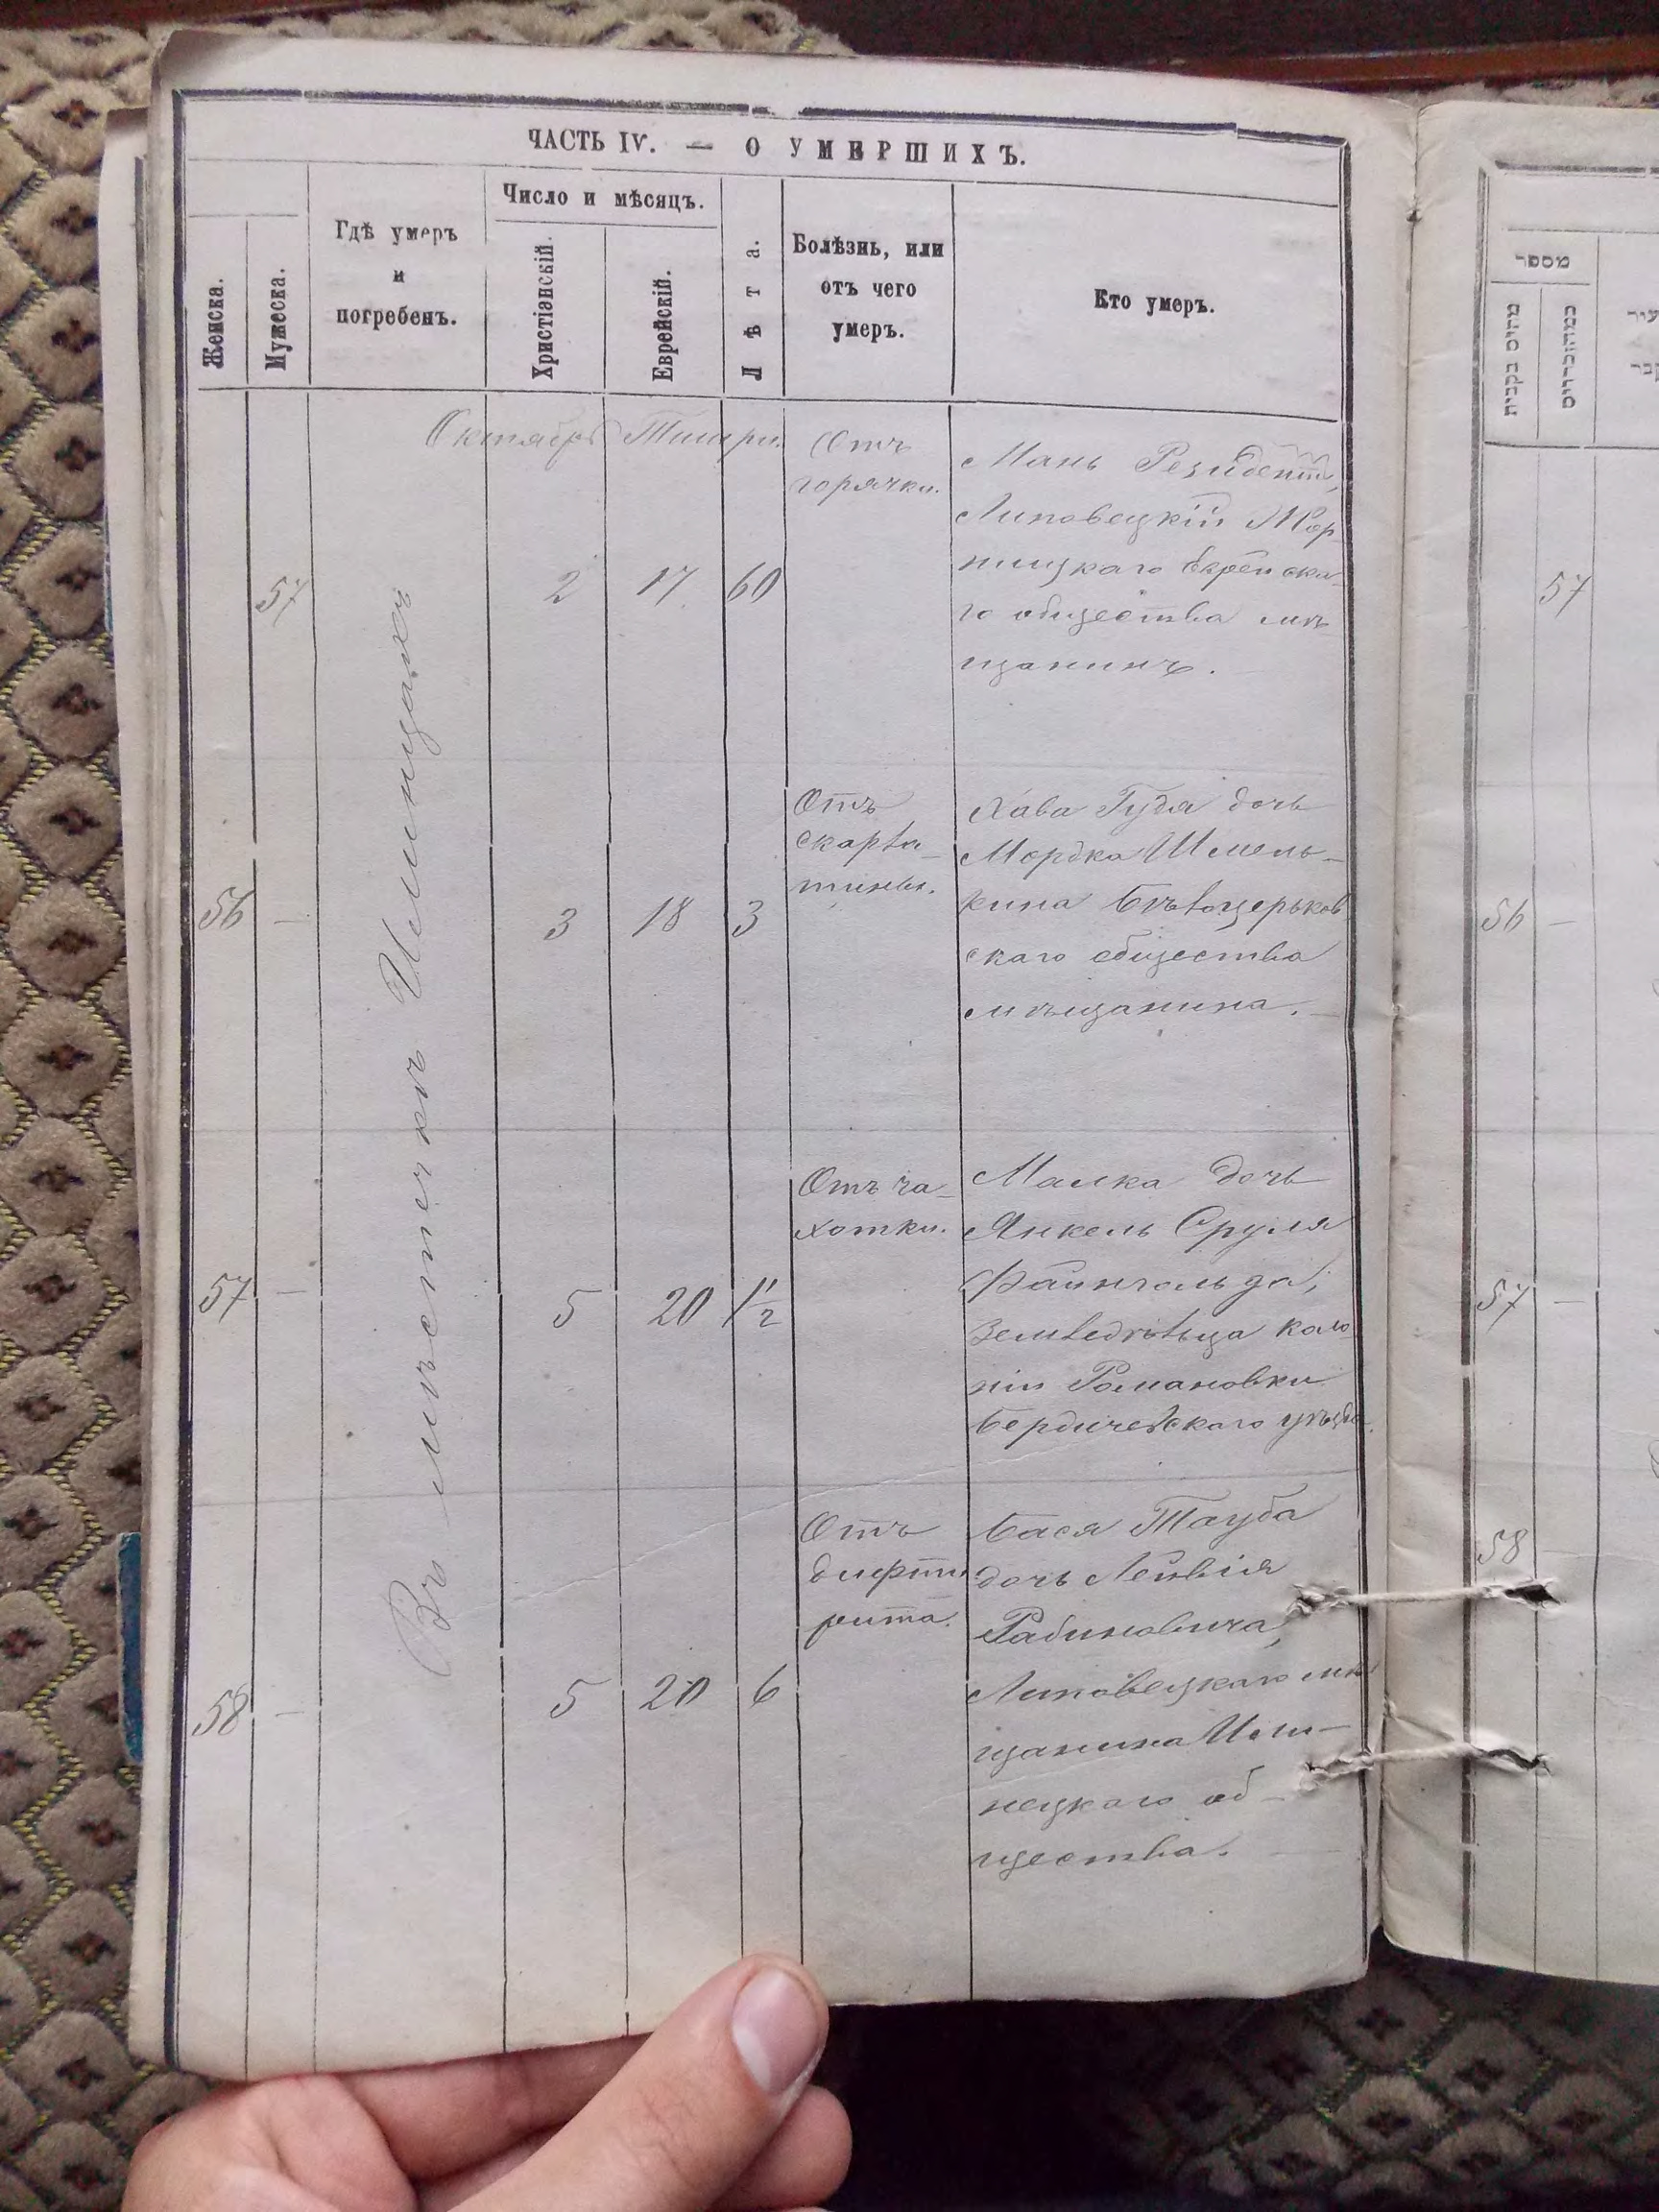 ЧАСТЬ IV. — О УМЕРШИХЪ.
Женска.
Мужеска.
Гдѣ умеръ
и
погребенъ.
Число и мѣсяцъ.
Христіанскій.
Еврейскій.
Лѣта.
Болѣзнь, или
отъ чего
умеръ.
Кто умеръ.
Въ мѣстечкѣ Илинцахъ
Октябрь Тишри.
57
2
17
60
Отъ
горячки.
Мань Резидентъ,
Липовецкій
го общества мѣ
щанинъ.
56
—
3
18
3
Отъ
скарла-
тины.
Хава Гудя дочь
Мордка Шмель-
кина Бѣлоцерьков
скаго общества
мѣщанина.
57
—
5
20
1 1/2
Отъ ча-
хотки.
Малка дочь
Янкель Сруля
Файнгольда,
земледѣльца коло
ніи Романовки
Бердичевскаго уѣзда.
58
—
5
20
6
Отъ
дифте
рита.
Бася Тауба
дочь Лейвія
Рабиновича,
Липовецкаго мѣ
щанина Или-
нецкаго об-
щества.
מספר
57
56 —
57 —
58